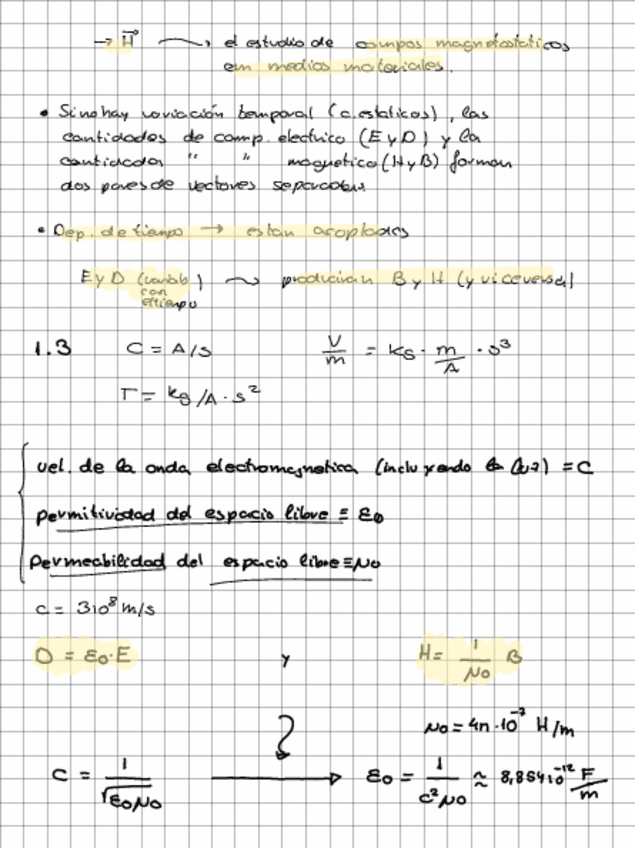 → H⃗ ⟶ el estudio de campos magnetostaticos
en medios materiales.
• Si no hay variación temporal (c. estaticos), las
cantidades de comp. electrico (E y D) y la
cantidades " " magnetico (H y B) forman
dos pares de vectores separables
• Dep. de tiempo → estan acoplados
E y D (variab) ⟶ producian B y H (y viceversa)
con
el tiempo
1.3 C = A/s V/m = kg · m/A · s³
T = kg/A · s²
vel. de la onda electromagnetica (incluyendo la luz) = C
permitividad del espacio libre ≡ ε0
permeabilidad del espacio libre ≡ μ0
c = 3 10⁸ m/s
D = ε0 · E y H = 1/μ0 B
μ0 = 4π · 10⁻⁷ H/m
C = 1/√ε0μ0 → ε0 = 1/c²μ0 ≈ 8,854 10⁻¹² F/m